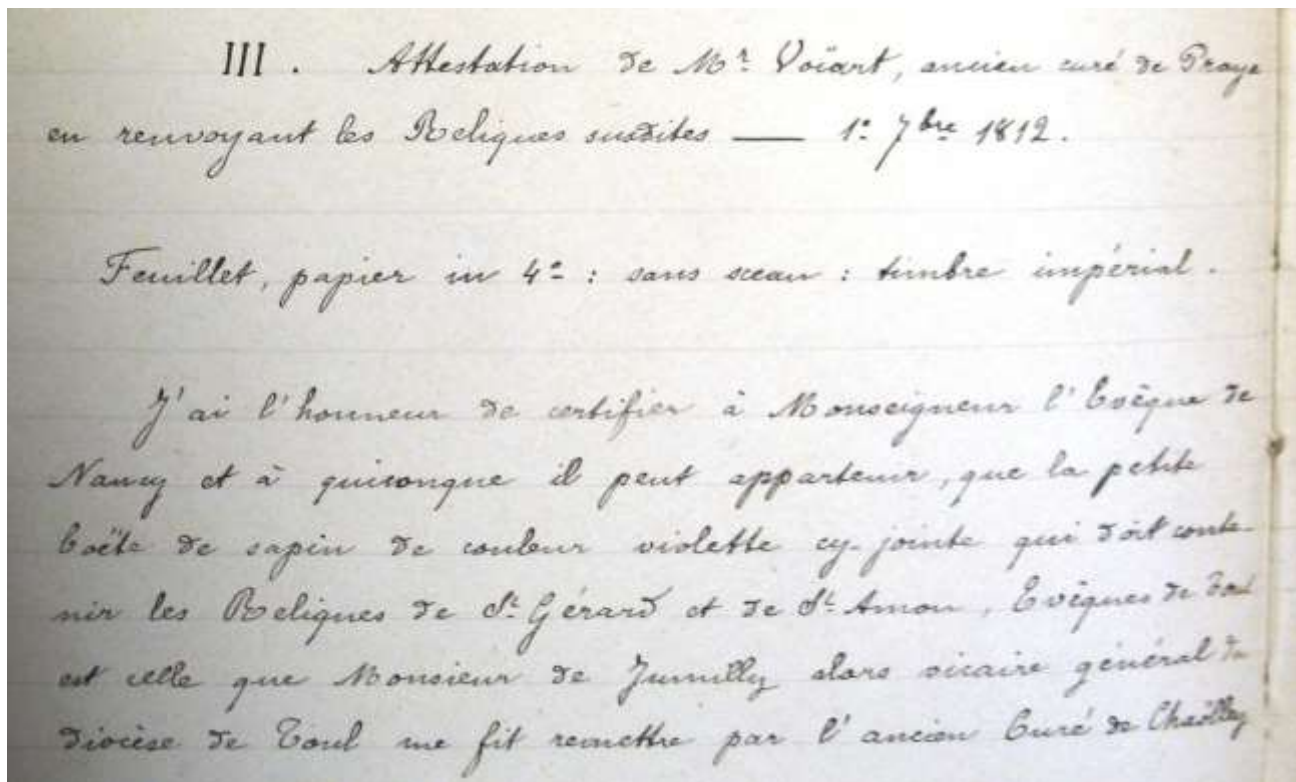 III . Attestation de Mr. Voïart, ancien curé de Praye
en renvoyant les Reliques susdites — 1º 7bre 1812.
Feuillet, papier in 4º : sans sceau : timbre impérial .
J'ai l'honneur de certifier à Monseigneur l'Evêque de
Nancy et à quiconque il peut appartenir, que la petite
boëte de sapin de couleur violette cy-jointe qui doit conte-
nir les Reliques de St. Gérard et de St. Amon, Evêques de Toul
est celle que Monsieur de Jumilly alors vicaire général du
diocèse de Toul me fit remettre par l'ancien Curé de